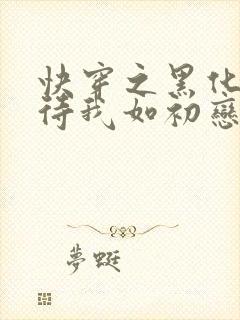 快穿之黑化
待我如初戀
夢蜓